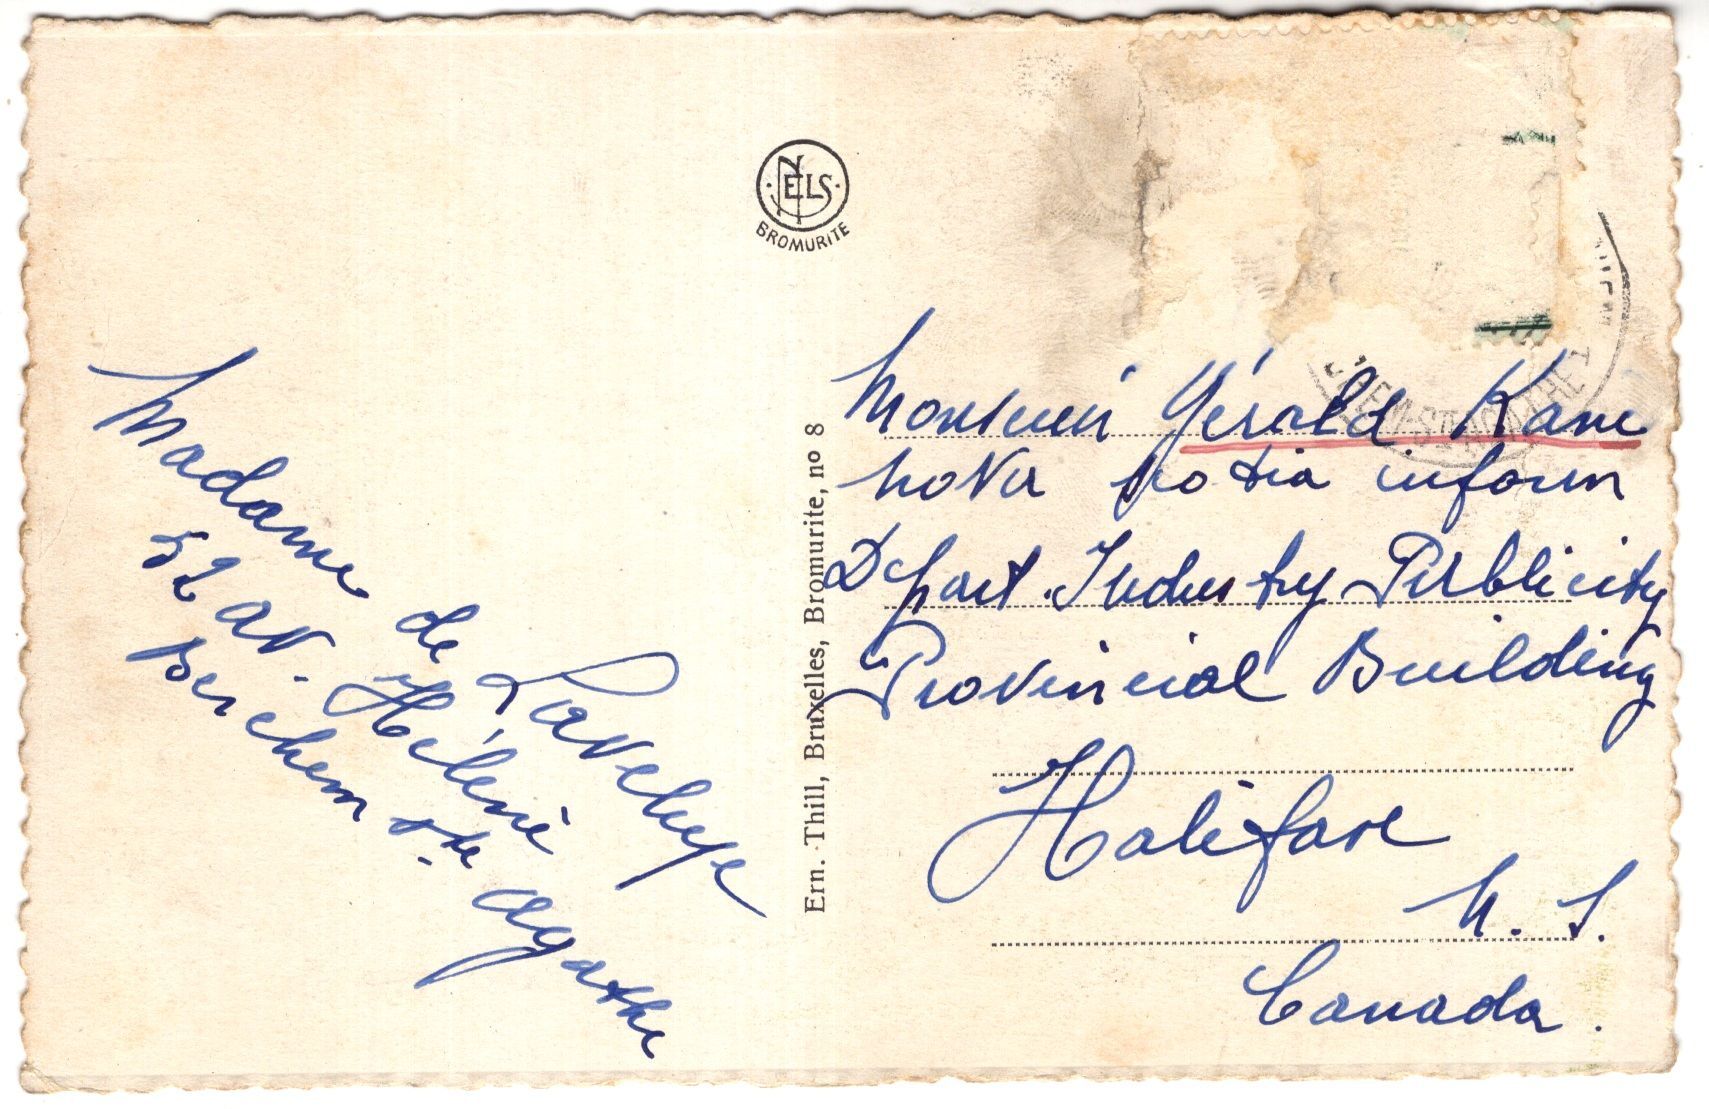 NELS
BROMURITE
Madame de Laveleye
52 av. Hélène
Berchem Ste. Agathe
Ern. Thill, Bruxelles, Bromurite, nº 8
Monsieur Gérald Kane
Nova Scotia inform
Depart. Industry Publicity
Provincial Building
Halifax
N. S.
Canada.